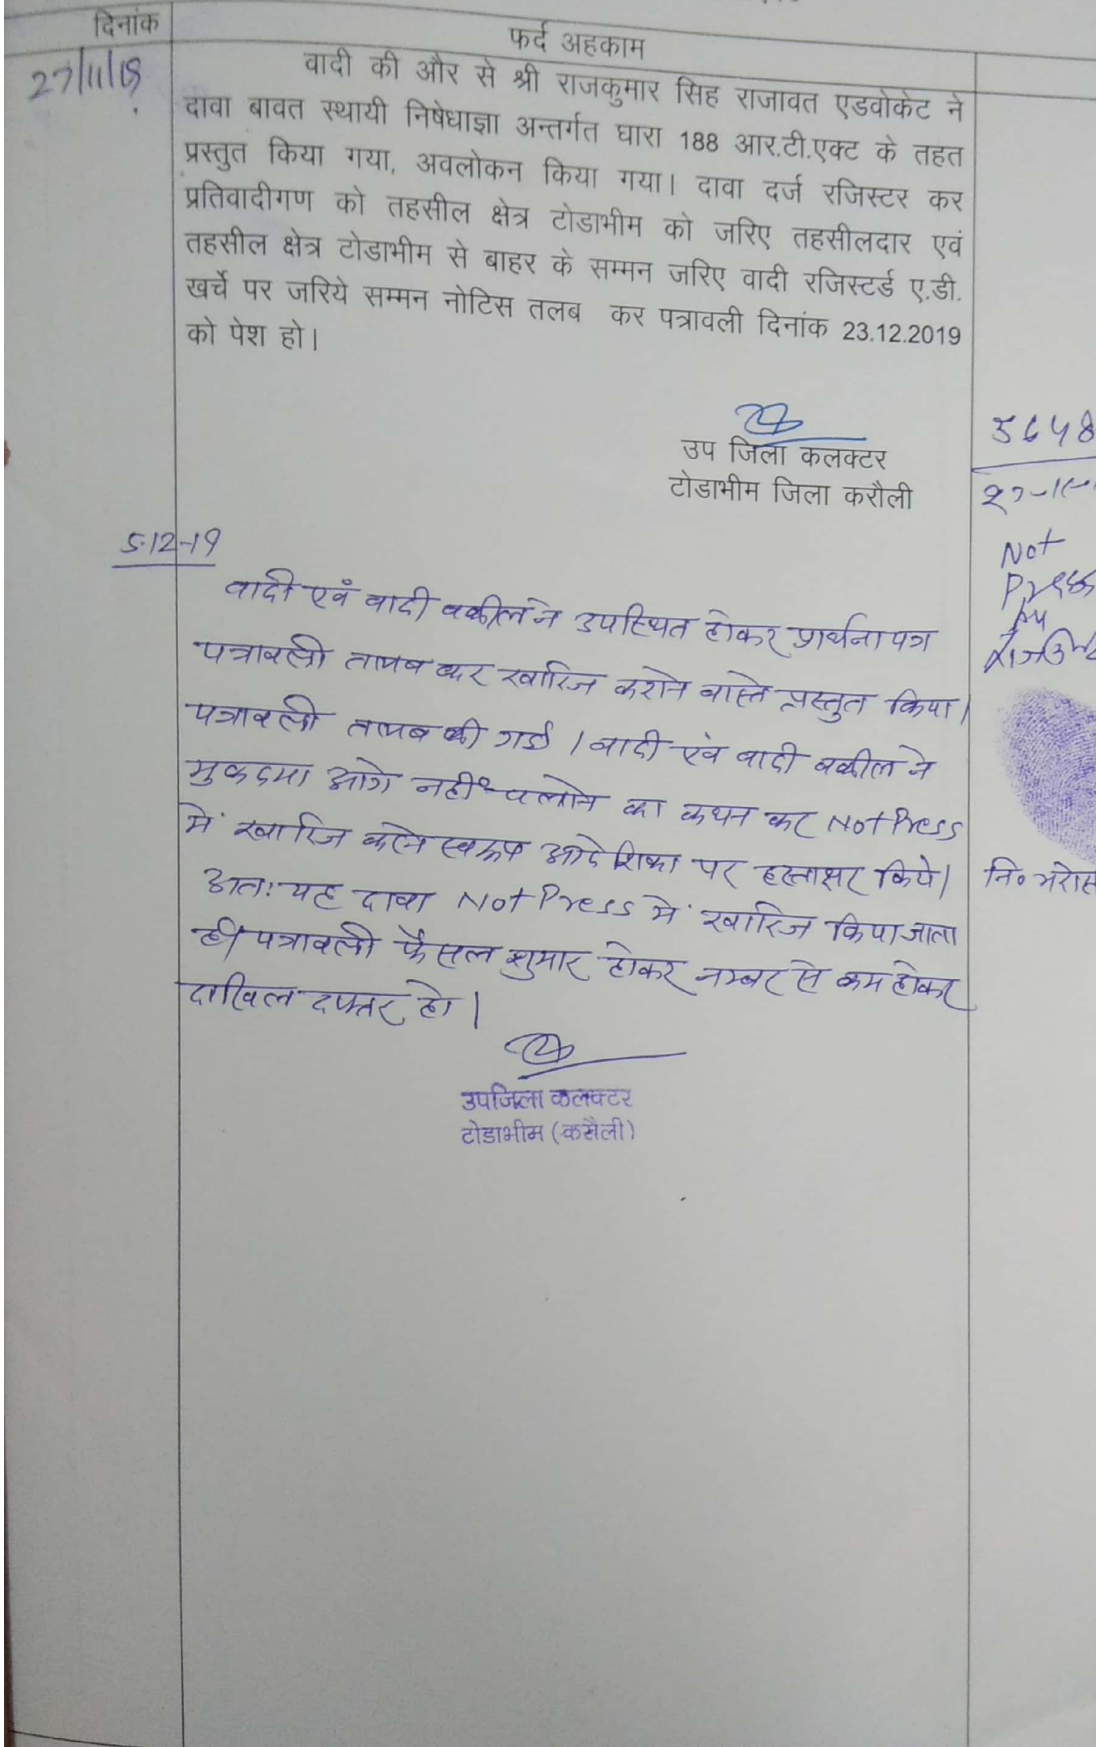 दिनांक
फर्द अहकाम
27/11/19
वादी की और से श्री राजकुमार सिह राजावत एडवोकेट ने
दावा बावत स्थायी निषेधाज्ञा अन्तर्गत धारा 188 आर.टी.एक्ट के तहत
प्रस्तुत किया गया, अवलोकन किया गया। दावा दर्ज रजिस्टर कर
प्रतिवादीगण को तहसील क्षेत्र टोडाभीम को जरिए तहसीलदार एवं
तहसील क्षेत्र टोडाभीम से बाहर के सम्मन जरिए वादी रजिस्टर्ड ए.डी.
खर्चे पर जरिये सम्मन नोटिस तलब कर पत्रावली दिनांक 23.12.2019
को पेश हो।
उप जिला कलक्टर
टोडाभीम जिला करौली
5648
5-12-19
Not
Press
by
वादी एवं वादी वकील ने उपस्थित होकर प्रार्थना पत्र
पत्रावली तलब कर खारिज कराने वास्ते प्रस्तुत किया।
पत्रावली तलब की गई। वादी एवं वादी वकील ने
मुकदमा आगे नहीं चलाने का कथन कर Not Press
में खारिज करने स्वरूप आदेशिका पर हस्ताक्षर किये।
नि०
अतः यह दावा Not Press में खारिज किया जाता
है। पत्रावली फैसल शुमार होकर नम्बर से कम होकर
दाखिल दफ्तर हो।
उपजिला कलक्टर
टोडाभीम (करौली)